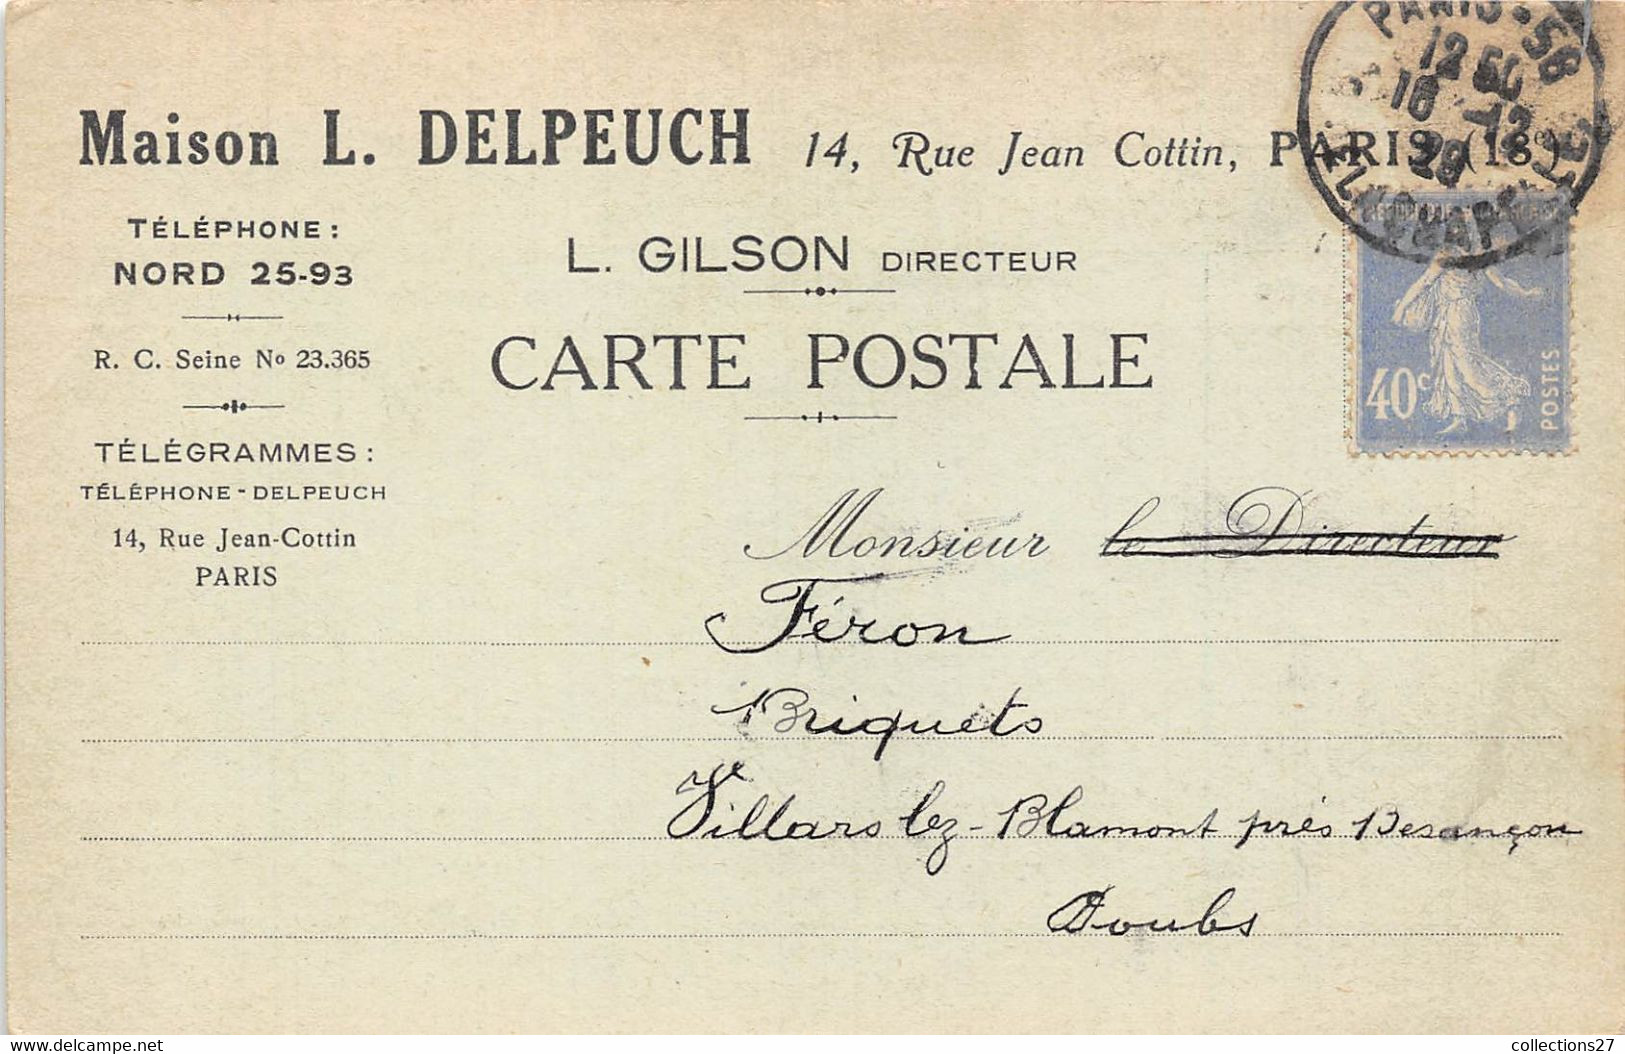 Maison L. DELPEUCH 14, Rue Jean Cottin, PARIS (18e)
PARIS-58
12 50
16
TÉLÉPHONE :
NORD 25-93
R. C. Seine No 23.365
TÉLÉGRAMMES :
TÉLÉPHONE - DELPEUCH
14, Rue Jean-Cottin
PARIS
L. GILSON DIRECTEUR
CARTE POSTALE
40c
POSTES
Monsieur le Directeur
Féron
Briquets
Villars lez-Blamont près Besançon
Doubs
www.delcampe.net
collections27